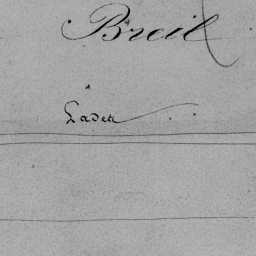 Breil
Cadet